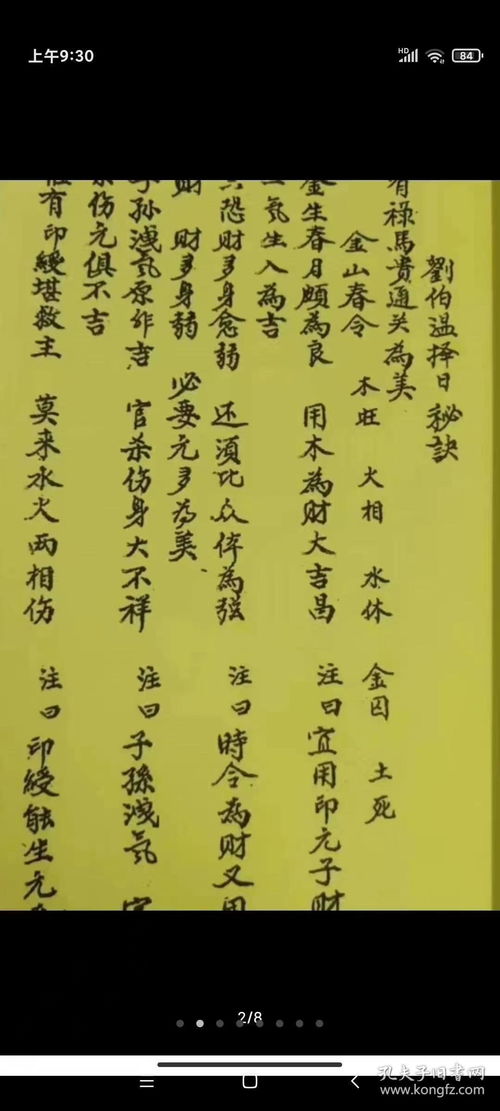 上午9:30
HD
84
劉伯温择日秘訣
有祿馬貴通关為美
金山春令 木旺 火相 水休 金囚 土死
金生春月頗為良 用木為財大吉昌 注曰宜用印元子财
氣生入為吉
恐财多身愈弱 还須比众伴為强 注曰時令為财又用
财 财多身弱 必要元多為美
子孙洩氣原作吉 官杀伤身大不祥 注曰子孫洩氣
杀伤元俱不吉
有印綬堪救主 莫来水火两相伤 注曰印綬能生元
2/8
孔夫子旧书网
www.kongfz.com